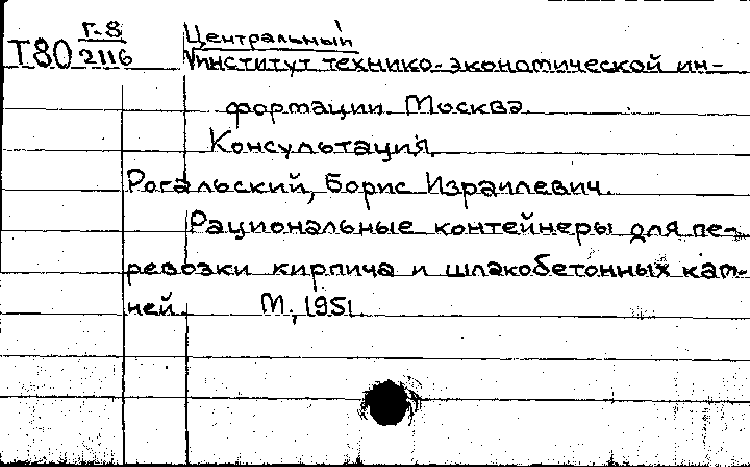 Т80 Г-8 Центральный
2116 институт технико-экономической ин-
формации. Москва.
Консультация.
Рогальский, Борис Израилевич.
Рациональные контейнеры для пе-
ревозки кирпича и шлакобетонных кам-
ней. М., 1951.